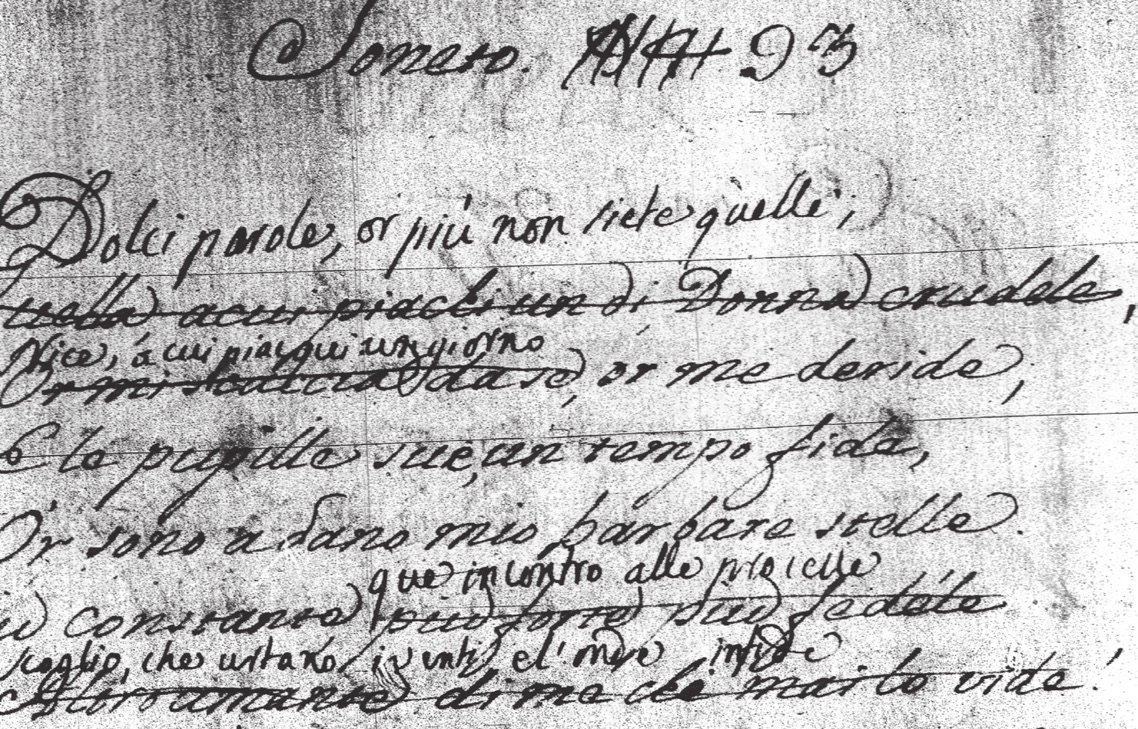 Soneto. 93
Dolci parole, or più non siete quelle;
quella a cui piacki un di Donna crudele,
Nice, á cui piacqui un giorno
Or mi scaccia da se, or me deride,
E le pupille sue, un tempo fide,
Or sono a dano mio barbare stelle.
que incontro alle procielle
constante più forte più fedéle
scoglio, che urtano i venti, e l'onde infide
amante di me che mai lo vide!